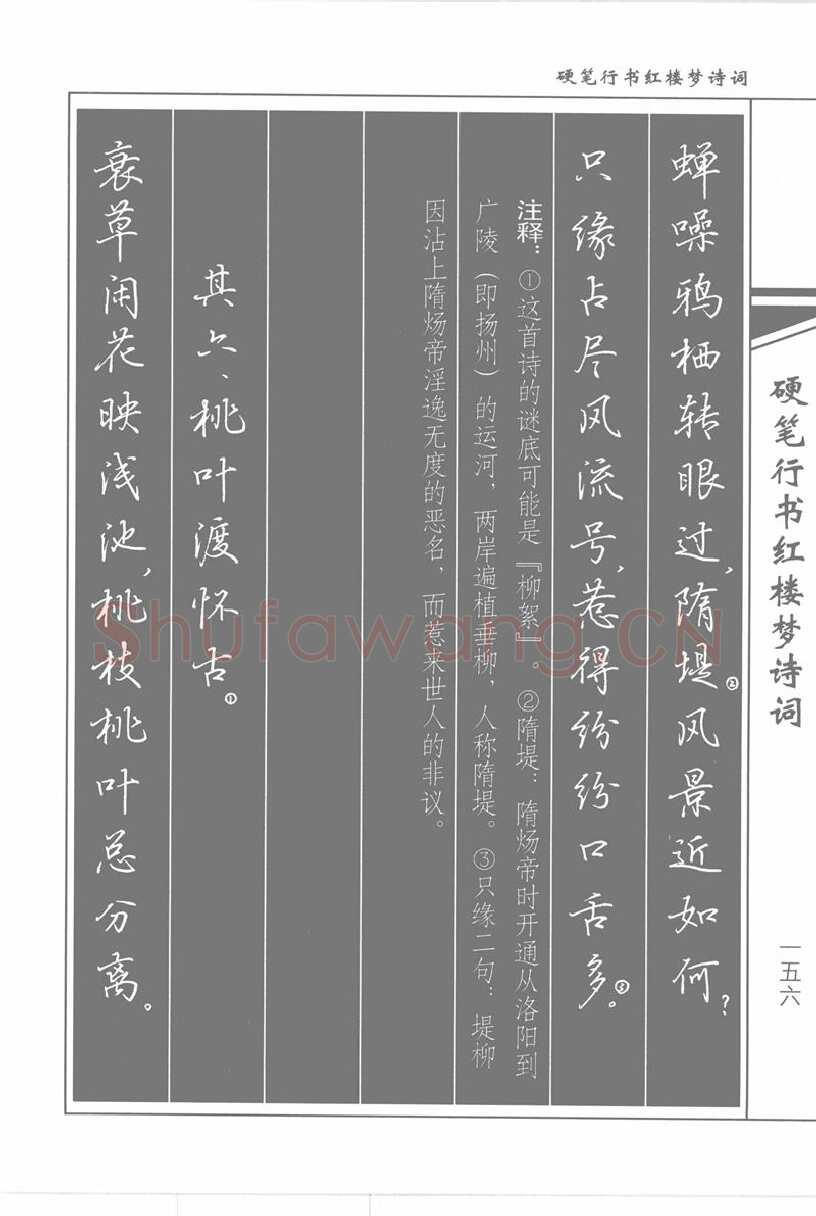 硬笔行书红楼梦诗词
蝉噪鸦栖转眼过，隋堤②风景近如何？
只缘占尽风流号，惹得纷纷口舌多。③
注释：①这首诗的谜底可能是『柳絮』。②隋堤：隋炀帝时开通从洛阳到
广陵（即扬州）的运河，两岸遍植垂柳，人称隋堤。③只缘二句：堤柳
因沾上隋炀帝淫逸无度的恶名，而惹来世人的非议。
其六、桃叶渡怀古①
衰草闲花映浅池，桃枝桃叶总分离。
硬笔行书红楼梦诗词
一五六
Shufawang.CN